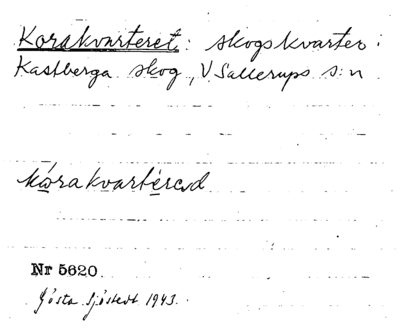 Korakvarteret: skogskvarter i
Kastberga skog, V Sallerups s:n
kórakvartérəd
Nr 5620.
Gösta Sjöstedt 1943.